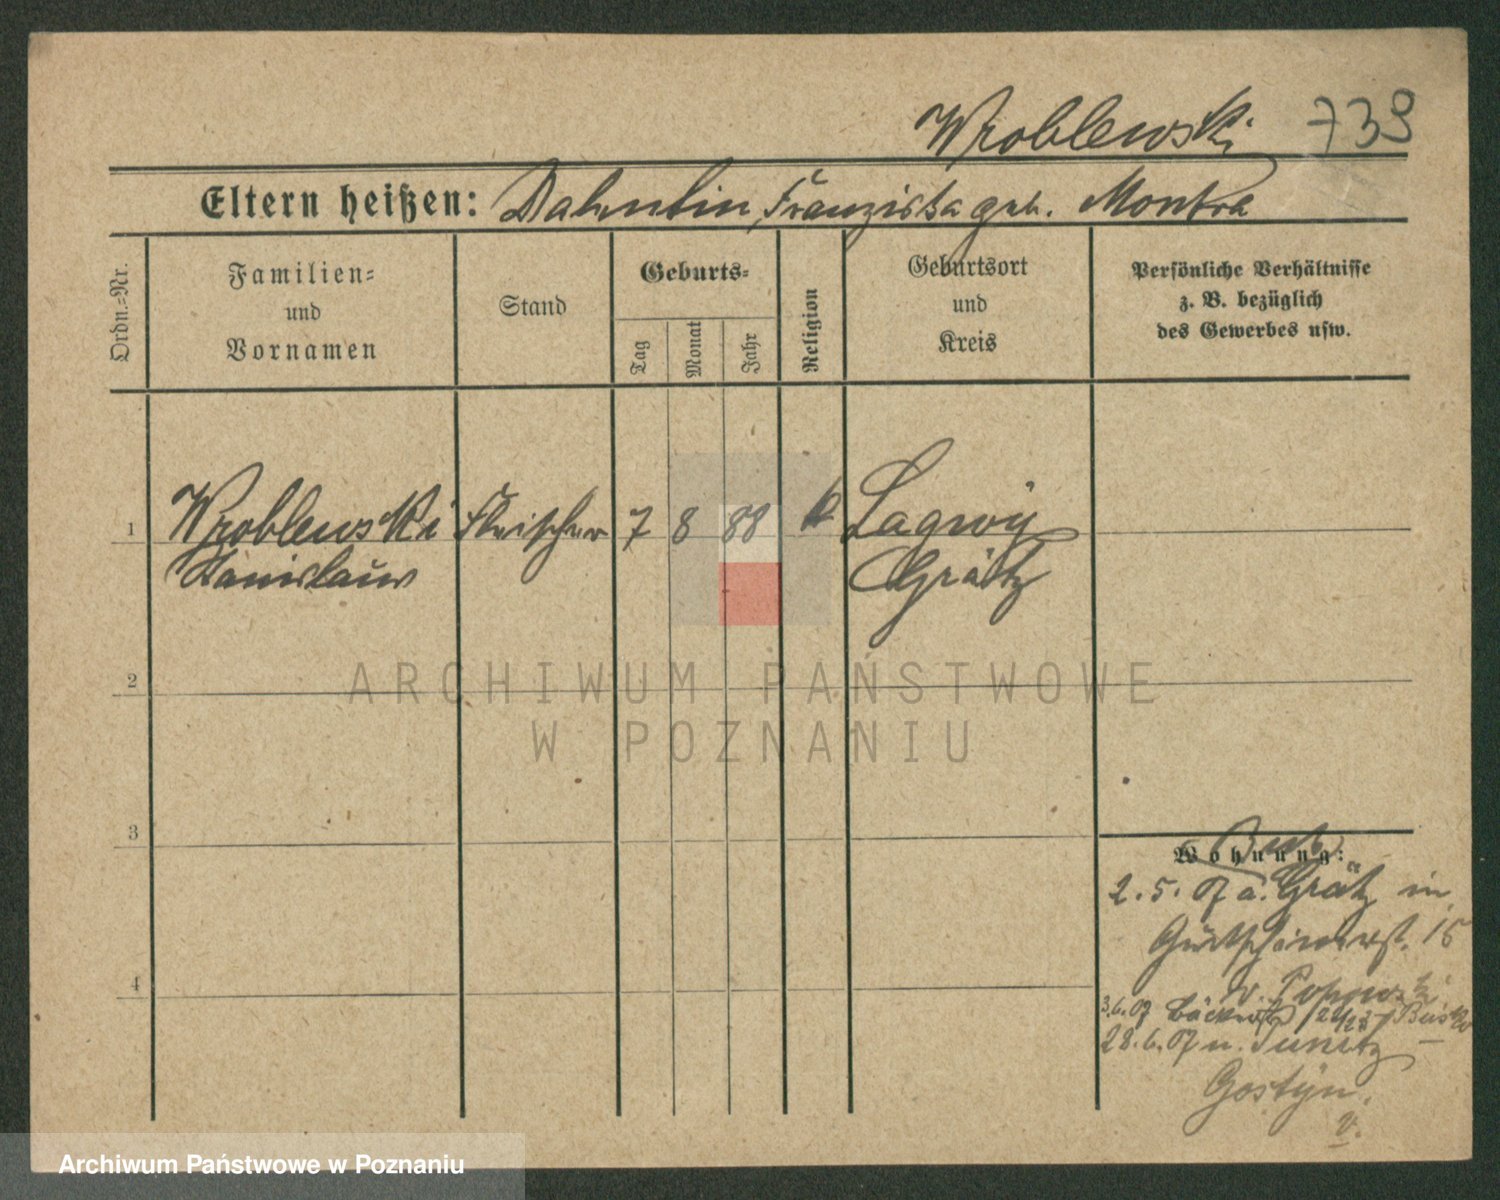 Wroblewski 739
Eltern heißen: Valentin, Franziska geb. Montra
Ordn.=Nr.
Familien=
und
Vornamen
Stand
Geburts=
Tag
Monat
Jahr
Religion
Geburtsort
und
Kreis
Persönliche Verhältnisse
z. B. bezüglich
des Gewerbes usw.
1 Wroblewski Fleischer 7 8 88 k Lagwy
Stanislaus Grätz
2
ARCHIWUM PAŃSTWOWE
W POZNANIU
3
Wohnung:
2.5.07 a. Grätz in
15
v.
3.6.07 Bäckerstr 22/23
28.6.07 n.
4
Gostyn.
v.
Archiwum Państwowe w Poznaniu